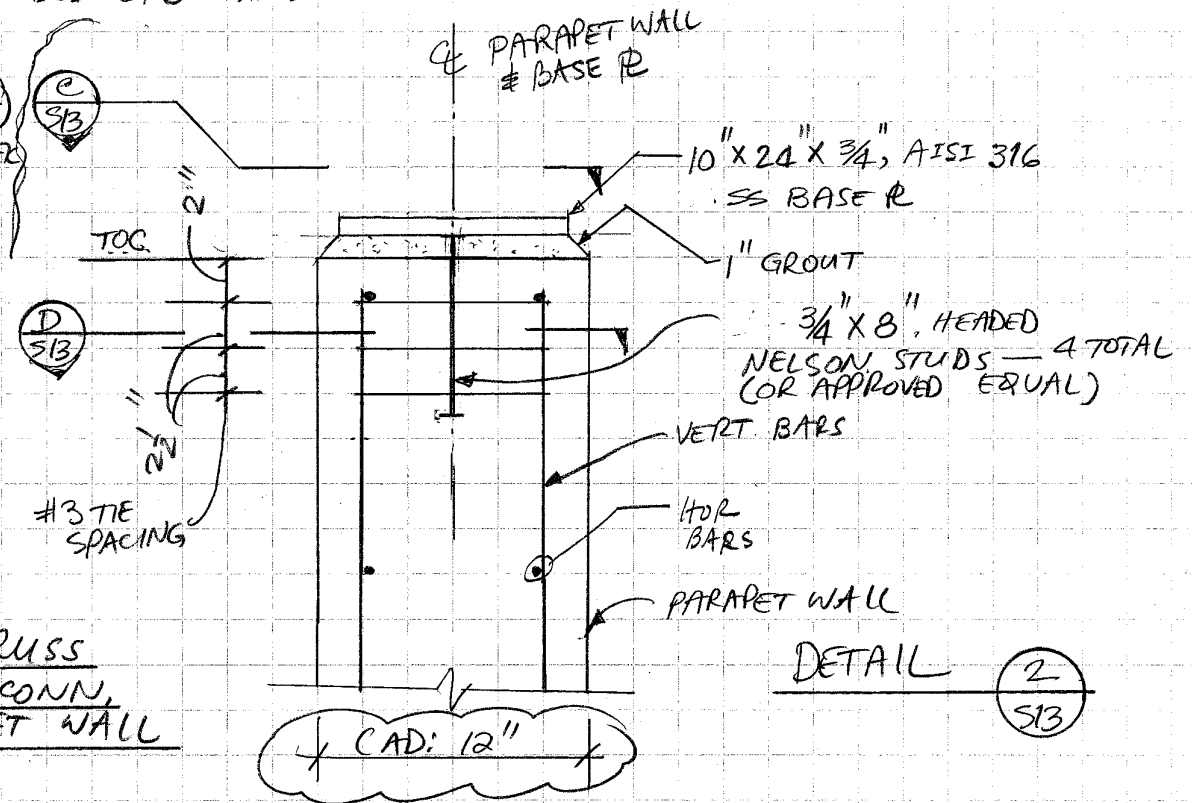 ℄ PARAPET WALL
& BASE ℙL
C
S13
2"
TOC
10" X 24" X 3/4", AISI 316
SS BASE ℙL
1" GROUT
D
S13
3/4" X 8", HEADED
NELSON STUDS — 4 TOTAL
(OR APPROVED EQUAL)
2½"
VERT BARS
#3 TIE
SPACING
HOR
BARS
PARAPET WALL
RUSS
CONN,
ET WALL
DETAIL 2
S13
CAD: 12"